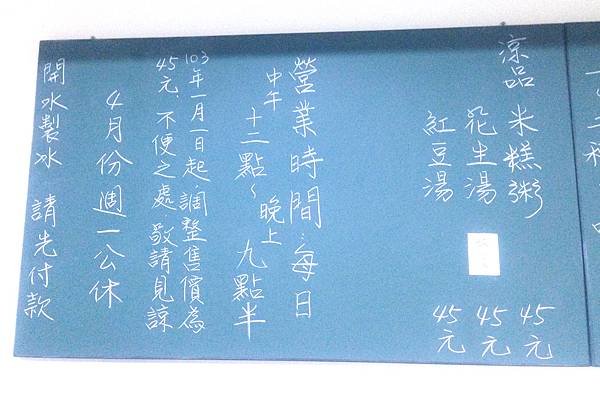 涼品 米糕粥 45元
花生湯 45元
紅豆湯 45元
營業時間:每日
中午十二點~晚上九點半
103年一月一日起,調整售價為
45元,不便之處 敬請見諒
4月份週一公休
開水製冰 請先付款